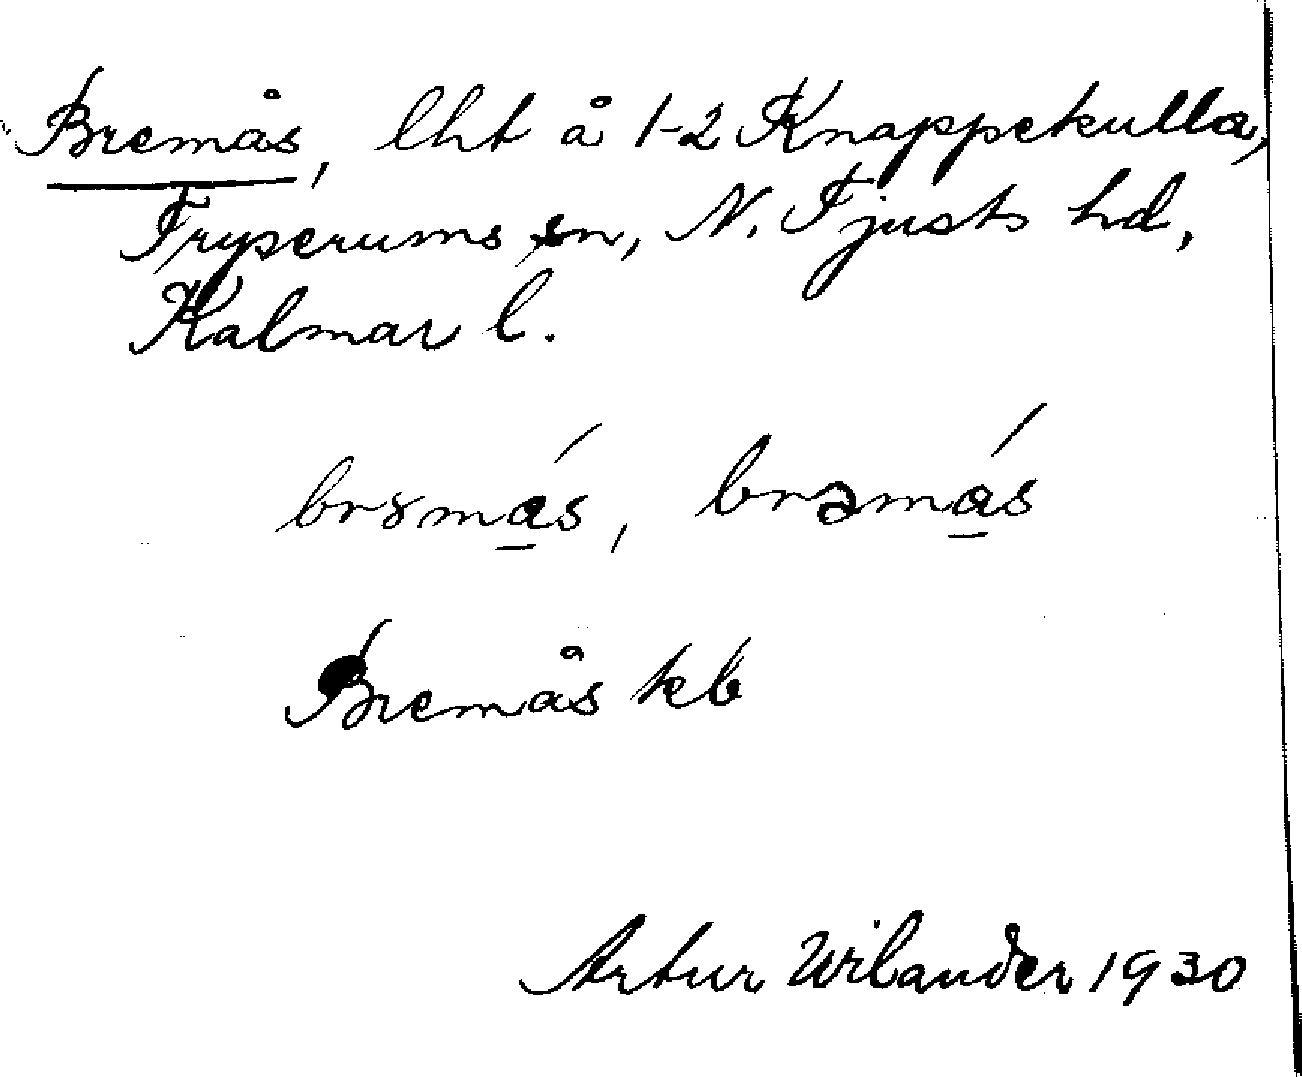 Bremås, lht å 1-2 Knappekulla,
Tryserums sn, N. Tjusts hd,
Kalmar l.
brɤmá̲s, brəmá̲s
Bremås kb
Artur Wilander 1930